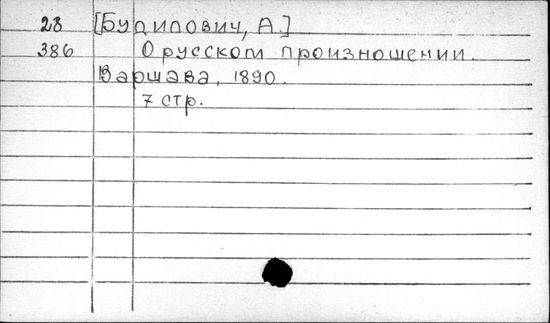 28 [Будилович, А.]
386 О русском произношении.
Варшава, 1890.
7 стр.